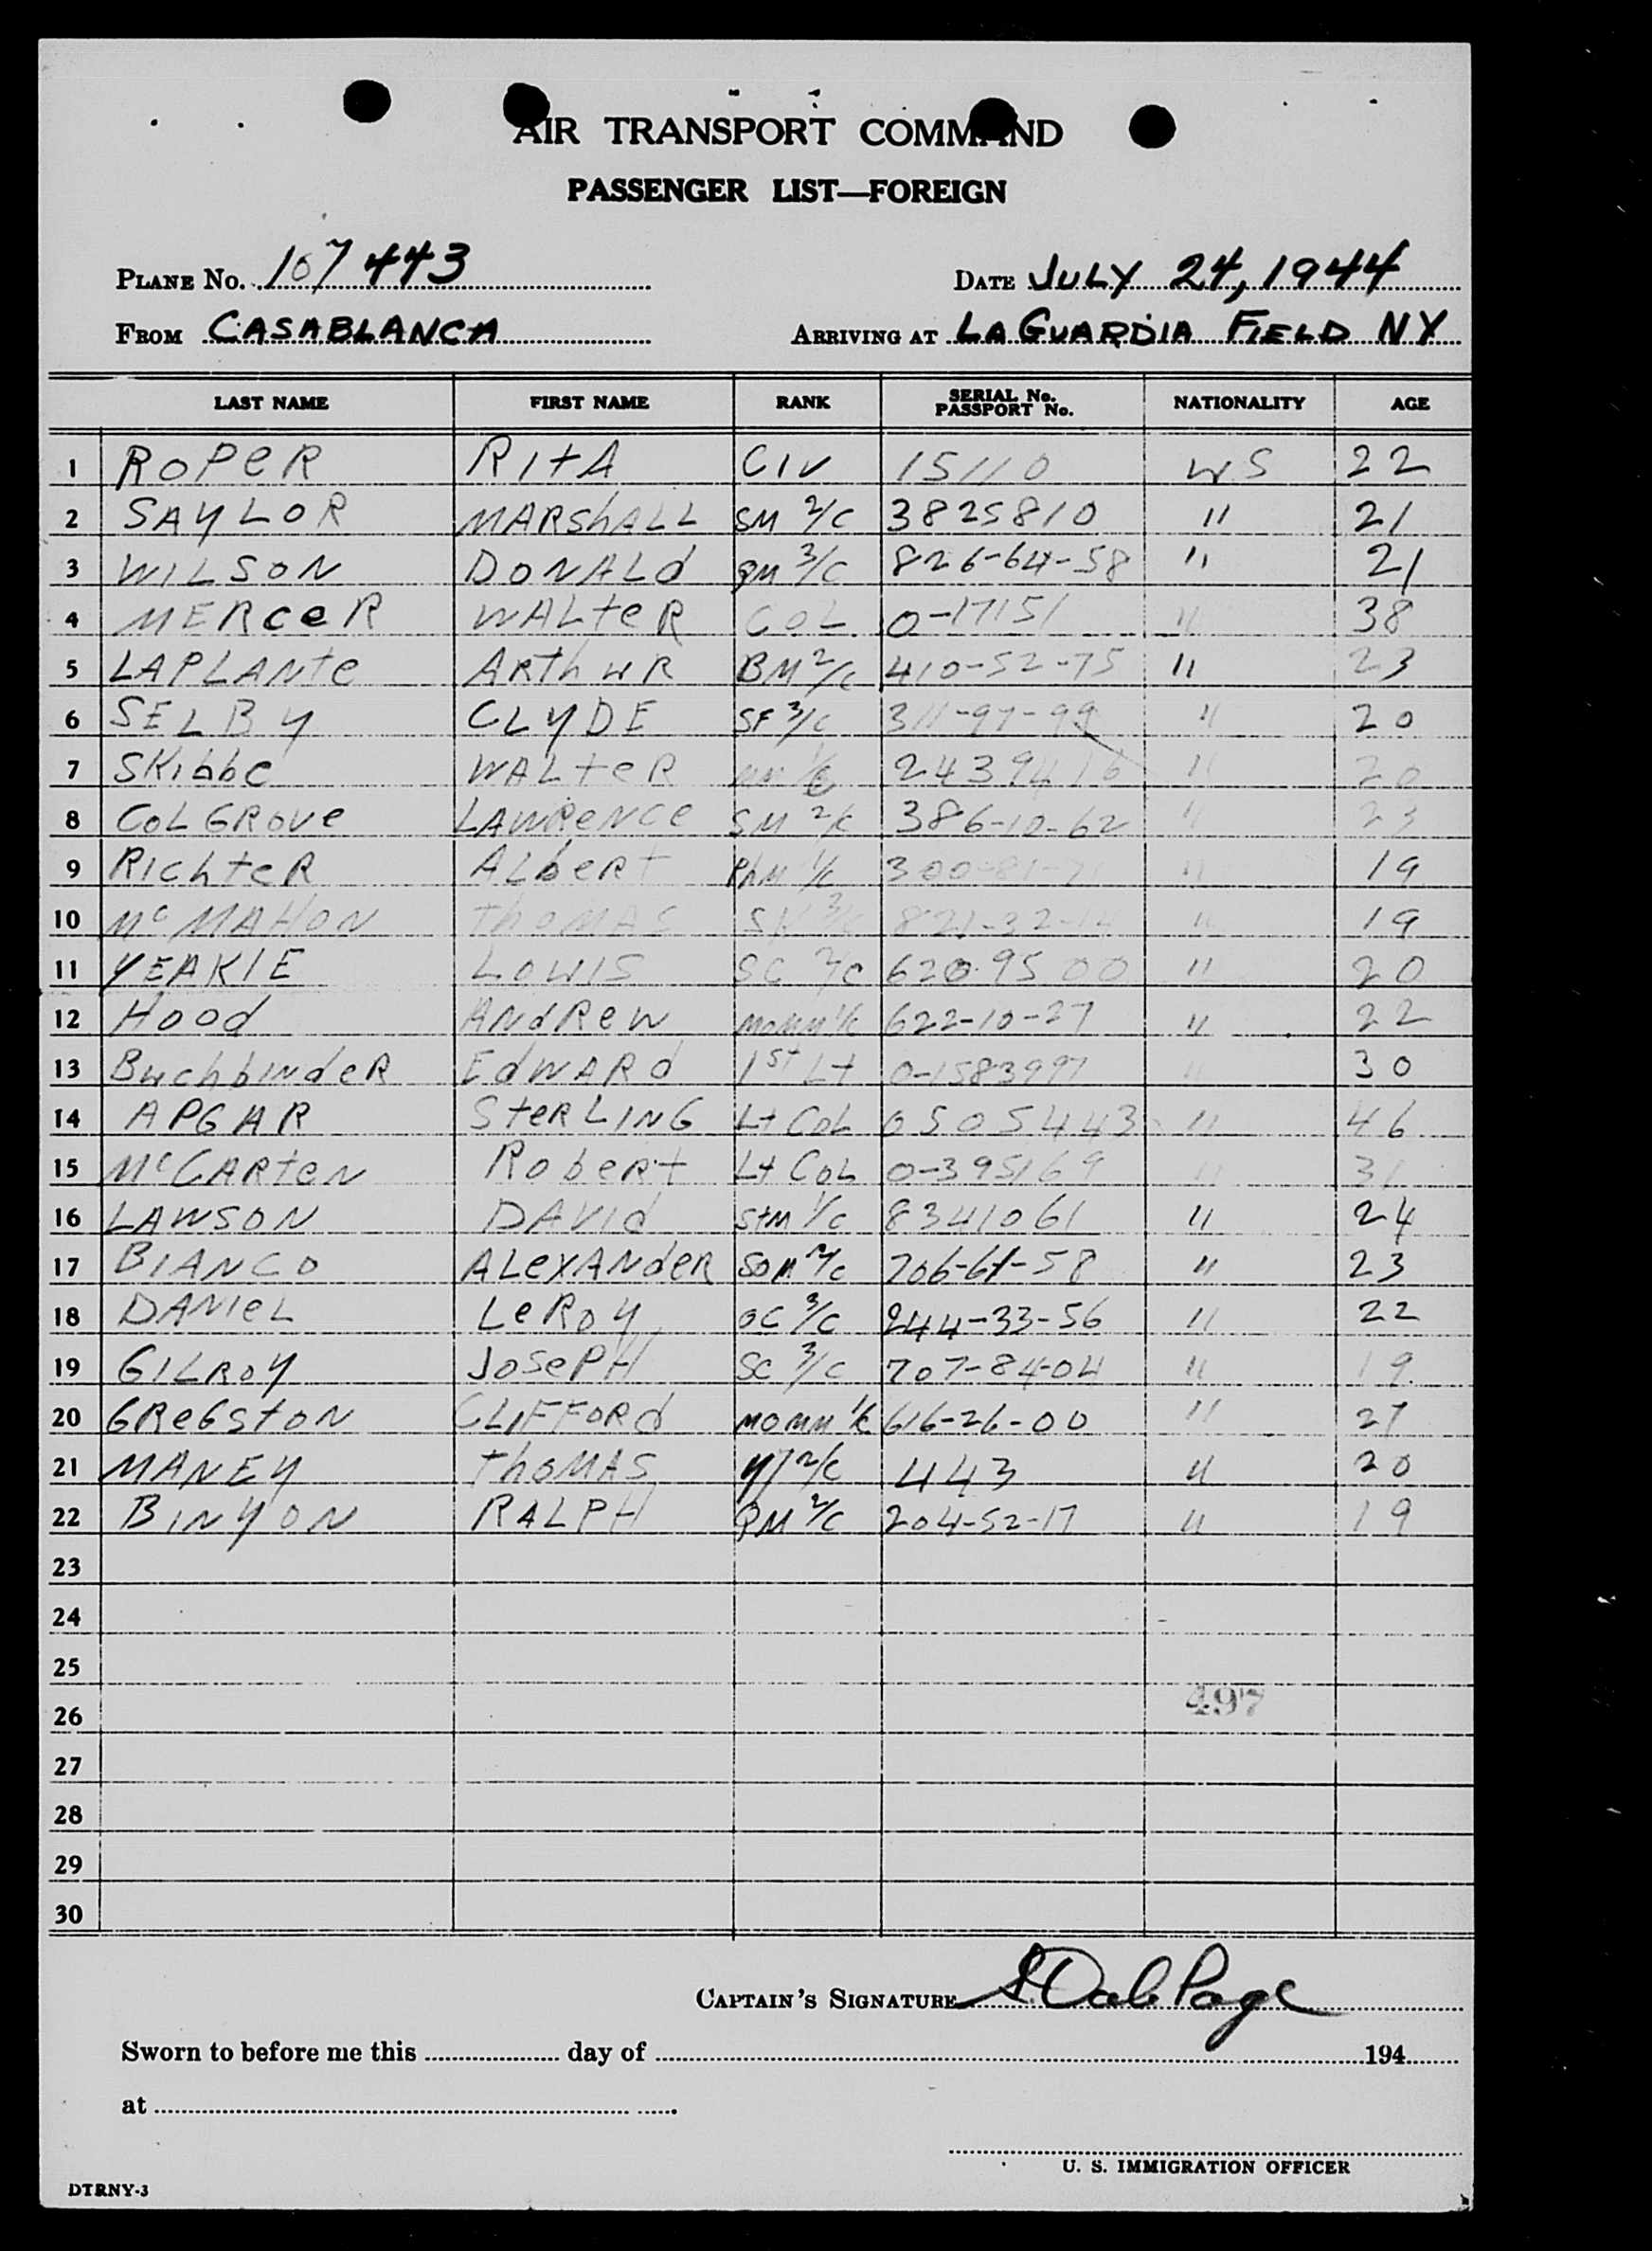 AIR TRANSPORT COMMAND
PASSENGER LIST—FOREIGN
PLANE No. 107443 DATE JULY 24, 1944
FROM CASABLANCA ARRIVING AT LAGUARDIA FIELD NY
LAST NAME FIRST NAME RANK SERIAL No. PASSPORT No. NATIONALITY AGE
1 ROPER RITA CIV 15110 US 22
2 SAYLOR MARSHALL SM 2/C 3825810 " 21
3 WILSON DONALD QM 3/C 826-64-58 " 21
4 MERCER WALTER COL 0-17151 " 38
5 LAPLANTE ARTHUR BM 2/C 410-52-75 " 23
6 SELBY CLYDE SF 3/C 311-97-99 " 20
7 SKIBBE WALTER 2439416 " 20
8 COLGROVE LAWRENCE SM 2/C 386-10-62 " 23
9 RICHTER ALBERT PhM 1/C 300-81-7 " 19
10 McMAHON THOMAS SK 3/C 821-32-14 " 19
11 YEAKIE LOUIS SC 2/C 620 95 00 " 20
12 HOOD ANDREW MOMM 1/C 622-10-27 " 22
13 BUCHBINDER EDWARD 1st Lt 0-1583997 " 30
14 APGAR STERLING Lt COL 0505443 " 46
15 McCARTEN ROBERT Lt COL 0-395169 " 31
16 LAWSON DAVID StM 1/C 8341061 " 24
17 BIANCO ALEXANDER SOM 2/C 706-61-58 " 23
18 DANIEL LEROY OC 3/C 244-33-56 " 22
19 GILROY JOSEPH SC 3/C 707-84-04 " 19
20 GREGSTON CLIFFORD MOMM 1/C 616-26-00 " 27
21 MANEY THOMAS 2/C 443 " 20
22 BINYON RALPH QM 2/C 204-52-17 " 19
23
24
25
26 497
27
28
29
30
CAPTAIN'S SIGNATURE Dale Page
Sworn to before me this day of 194
at
U. S. IMMIGRATION OFFICER
DTRNY-3